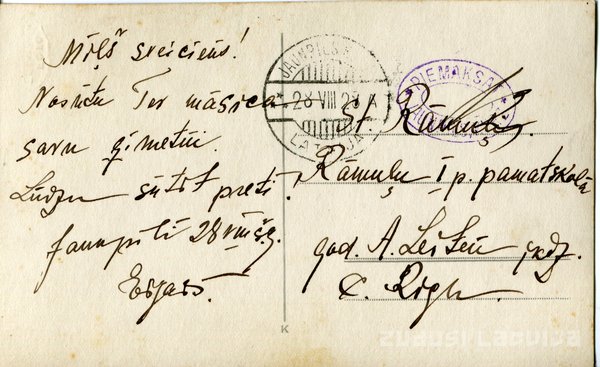 Mīļš sveiciens!
Nosūtu Tev māsiņa
savu ģimetni.
Lūdzu sūtīt pretī!
Jaunpilī 28
JAUNPILS
28 VIII 28 A
LATVIJA
PIEMAKSA
st. Rāmuļi
Rāmuļu I p. pamatskolā
god. A.
c. Rīgu.
K
zudusi Latvija